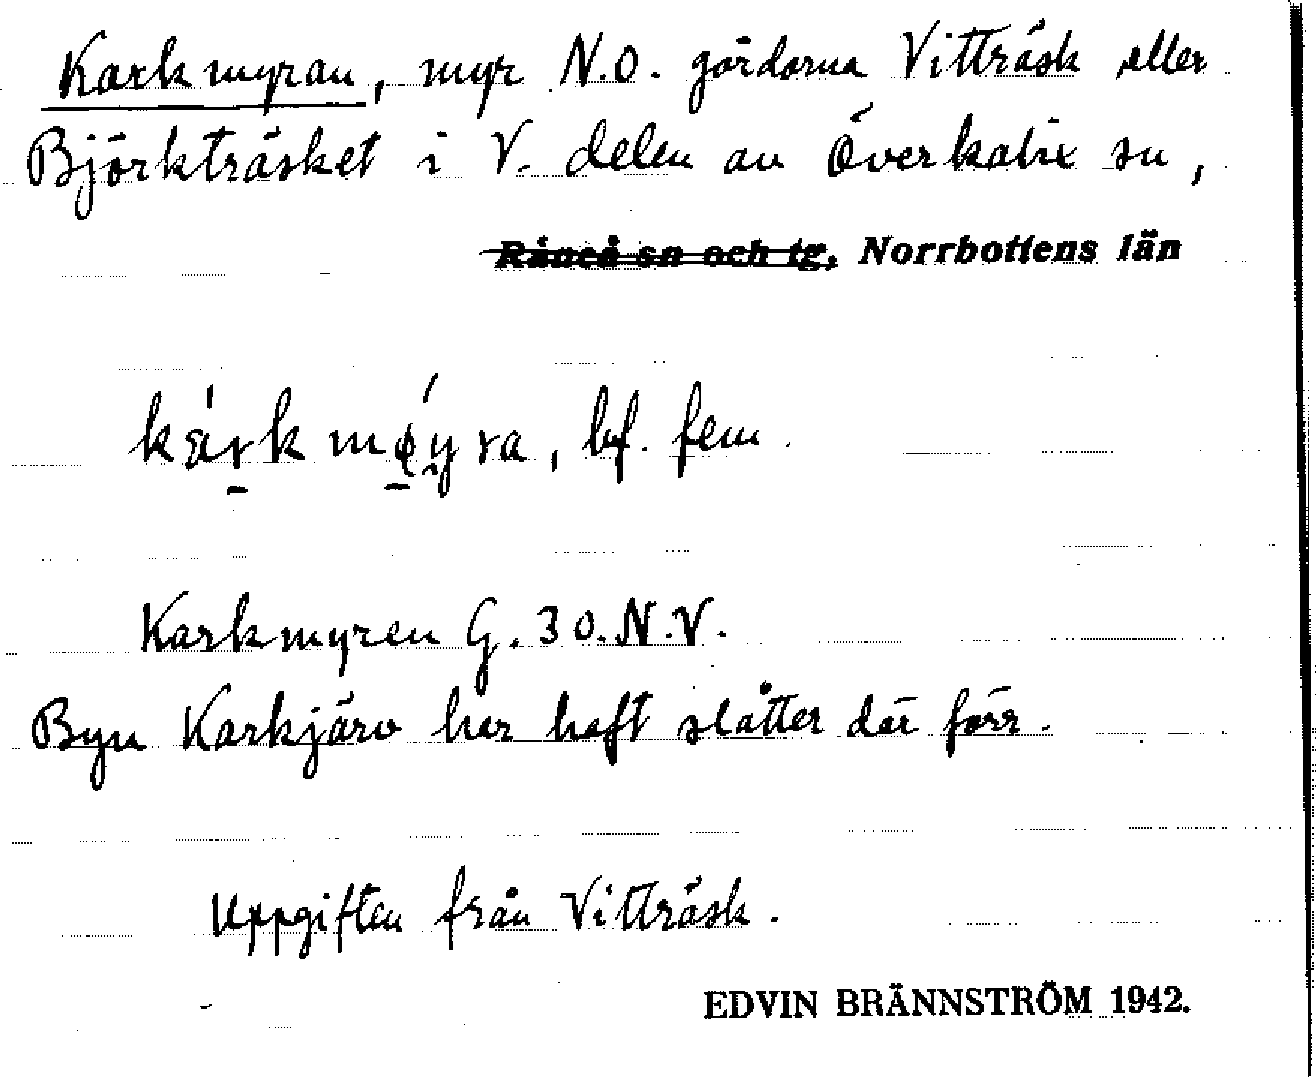 Karkmyran, myr N.O. gårdarna Vitträsk eller
Björkträsket i V. delen av Överkalix sn,
Råneå sn och tg, Norrbottens län
kárk møyra, bf. fem.
Karkmyren G. 30. N.V.
Byn Karkjärv har haft slåtter där förr.
Uppgiften från Vitträsk.
EDVIN BRÄNNSTRÖM 1942.